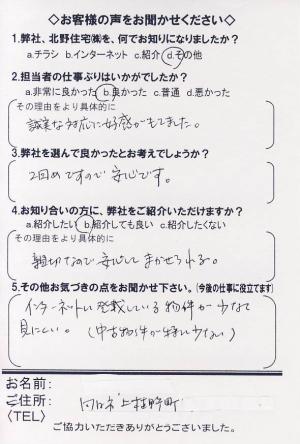 ◇お客様の声をお聞かせください◇
1.弊社、北野住宅㈱を、何でお知りになりましたか?
a.チラシ b.インターネット c.紹介 d.その他
2.担当者の仕事ぶりはいかがでしたか?
a.非常に良かった b.良かった c.普通 d.悪かった
その理由をより具体的に
誠実な対応に好感がもてました。
3.弊社を選んで良かったとお考えでしょうか?
2回めですので安心です。
4.お知り合いの方に、弊社をご紹介いただけますか?
a.紹介したい b.紹介しても良い c.紹介したくない
その理由をより具体的に
親切なので安心してまかせられる。
5.その他お気づきの点をお聞かせ下さい。(今後の仕事に役立てます)
インターネットに登載している物件が少なくて
見にくい。(中古物件が特に少ない)
お名前:
ご住所: 上桂町
〈TEL〉
ご協力いただきありがとうございました。